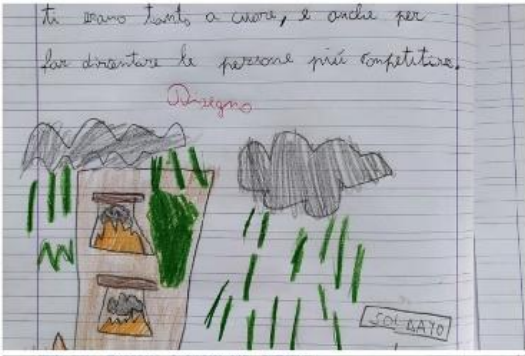 ti erano tanto a cuore, e anche per
far diventare le persone più competitive.
Disegno
SOLDATO